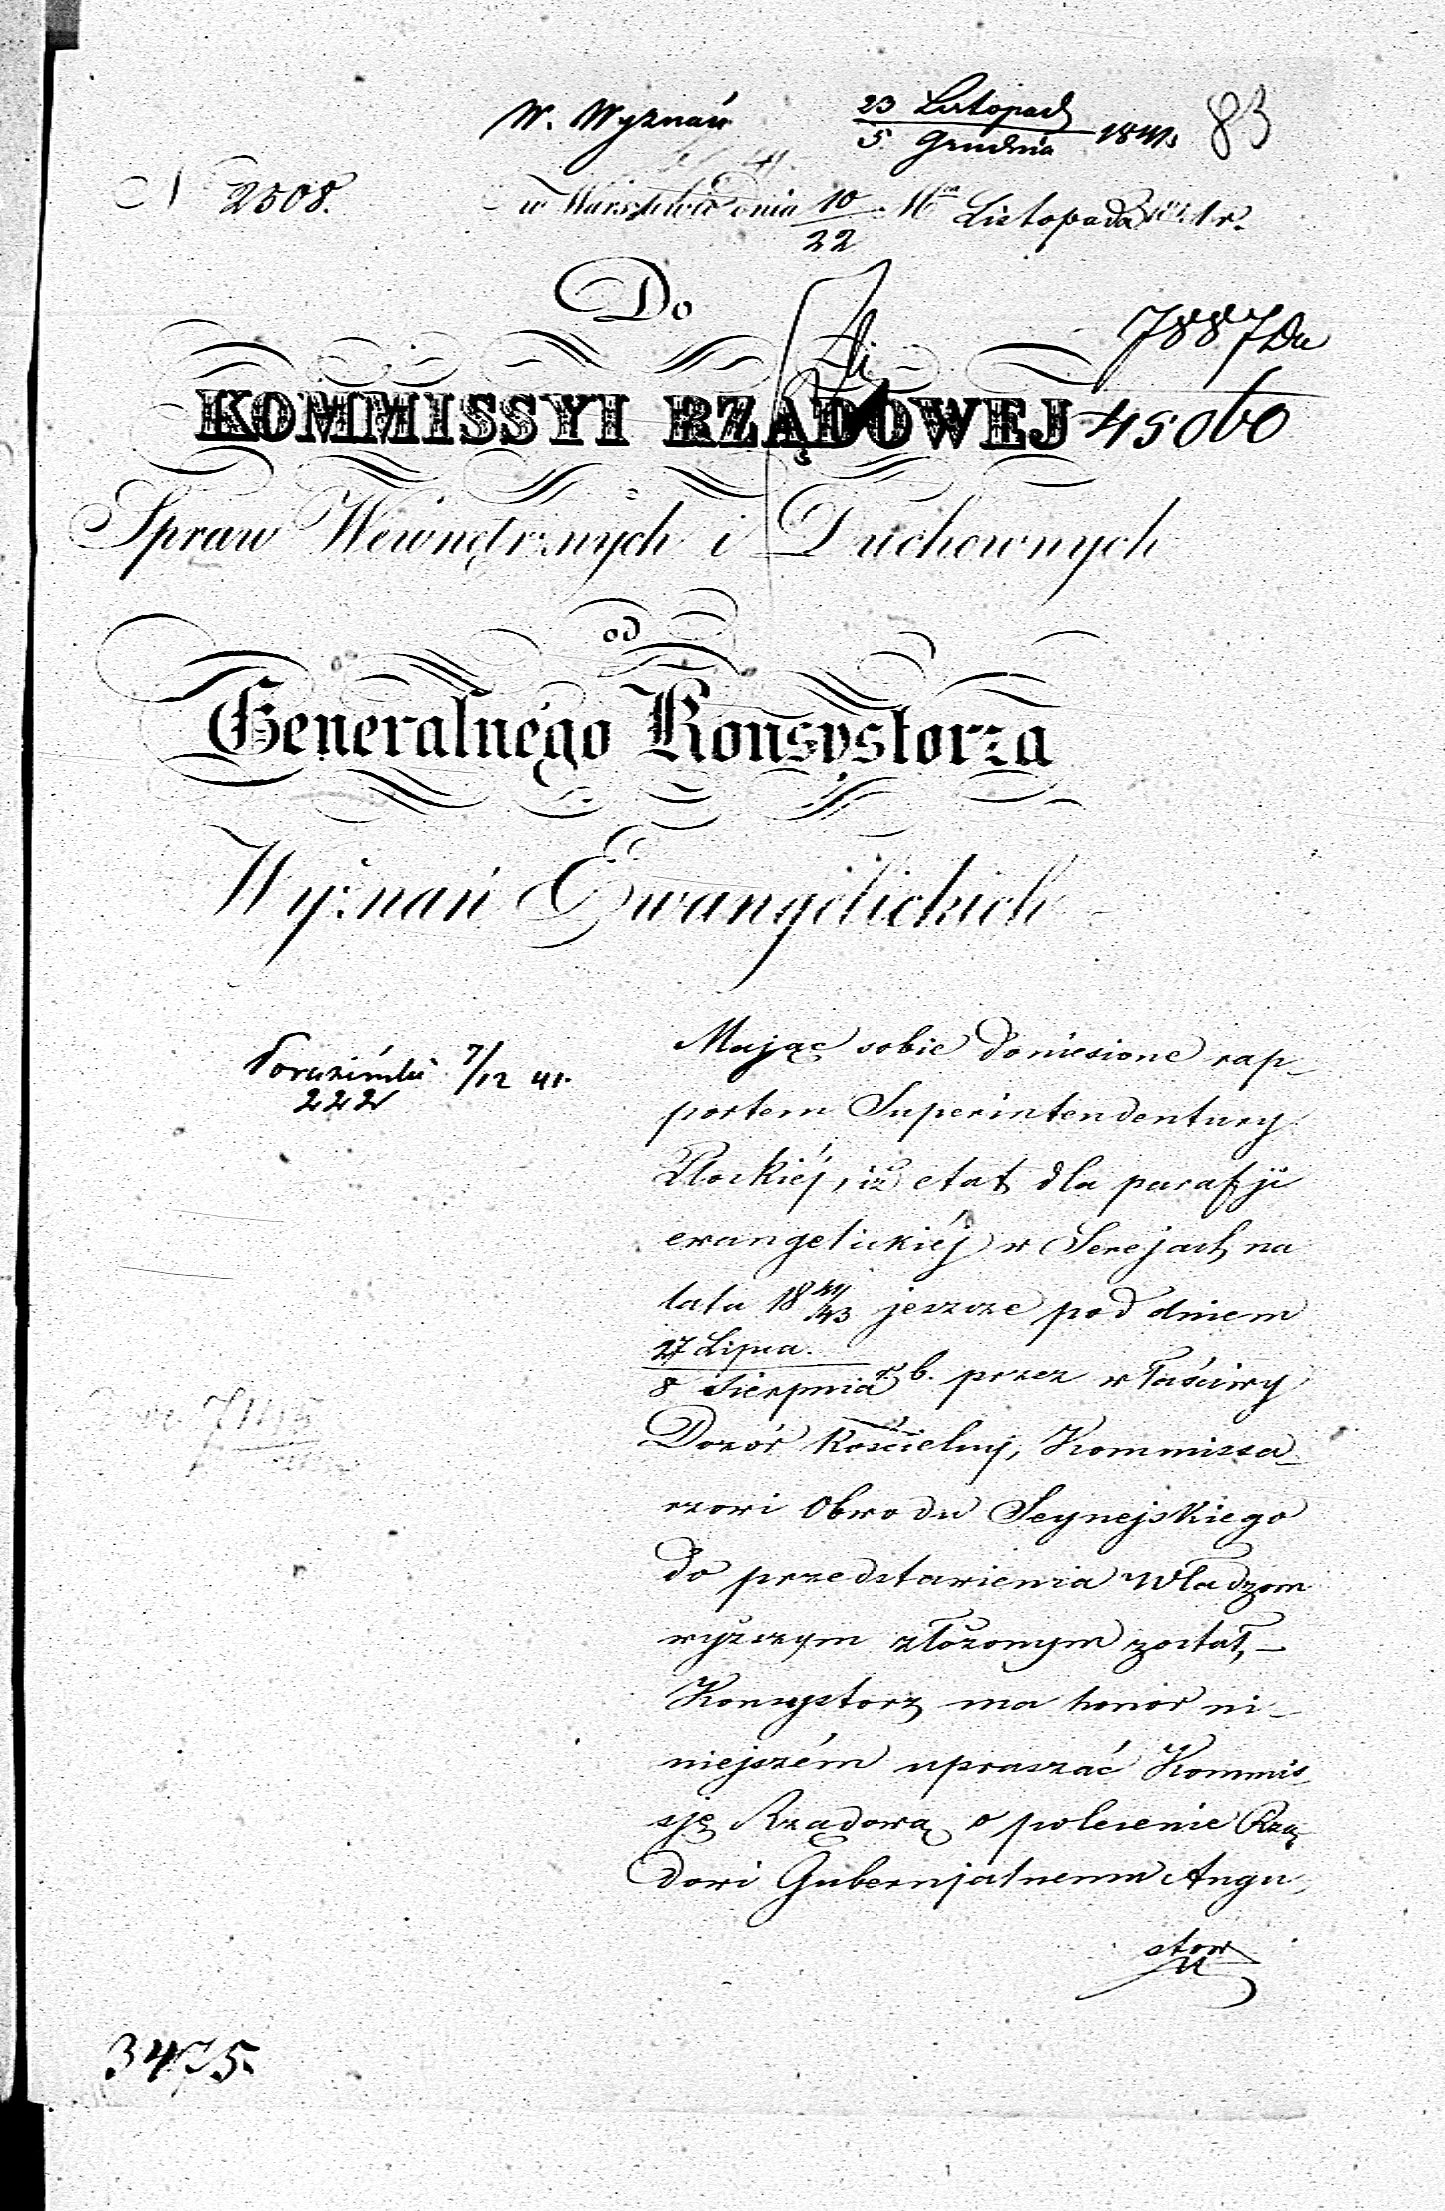 W. Wyznań 23 Listopad 83
5 Grudnia 1841
N 2508. w Warszawie dnia 10/22 Mca Listopada 1841 r.
Do
7887
KOMMISSYI RZĄDOWEJ
Spraw Wewnętrznych i Duchownych
od
Generalnego Konsystorza
Wyznań Ewangelickich
7/12 41.
222
Mając sobie doniesione rap-
portem Superintendentury
Płockiéj, iż etat dla parafji
ewangelickiéj w Serejach na
lata 18 41/43 jeszcze pod dniem
27 Lipca.
8 Sierpnia r. b. przez właściwy
Dozór Kościelny, Kommissa-
rzowi Obwodu Seynejskiego
do przedstawienia Władzom
wyższym złożonym został, –
Konsystorz ma honor ni-
niejszém upraszać Kommis-
sję Rządową o polecenie Rzą-
dowi Gubernjalnemu Augu-
stow
3475.